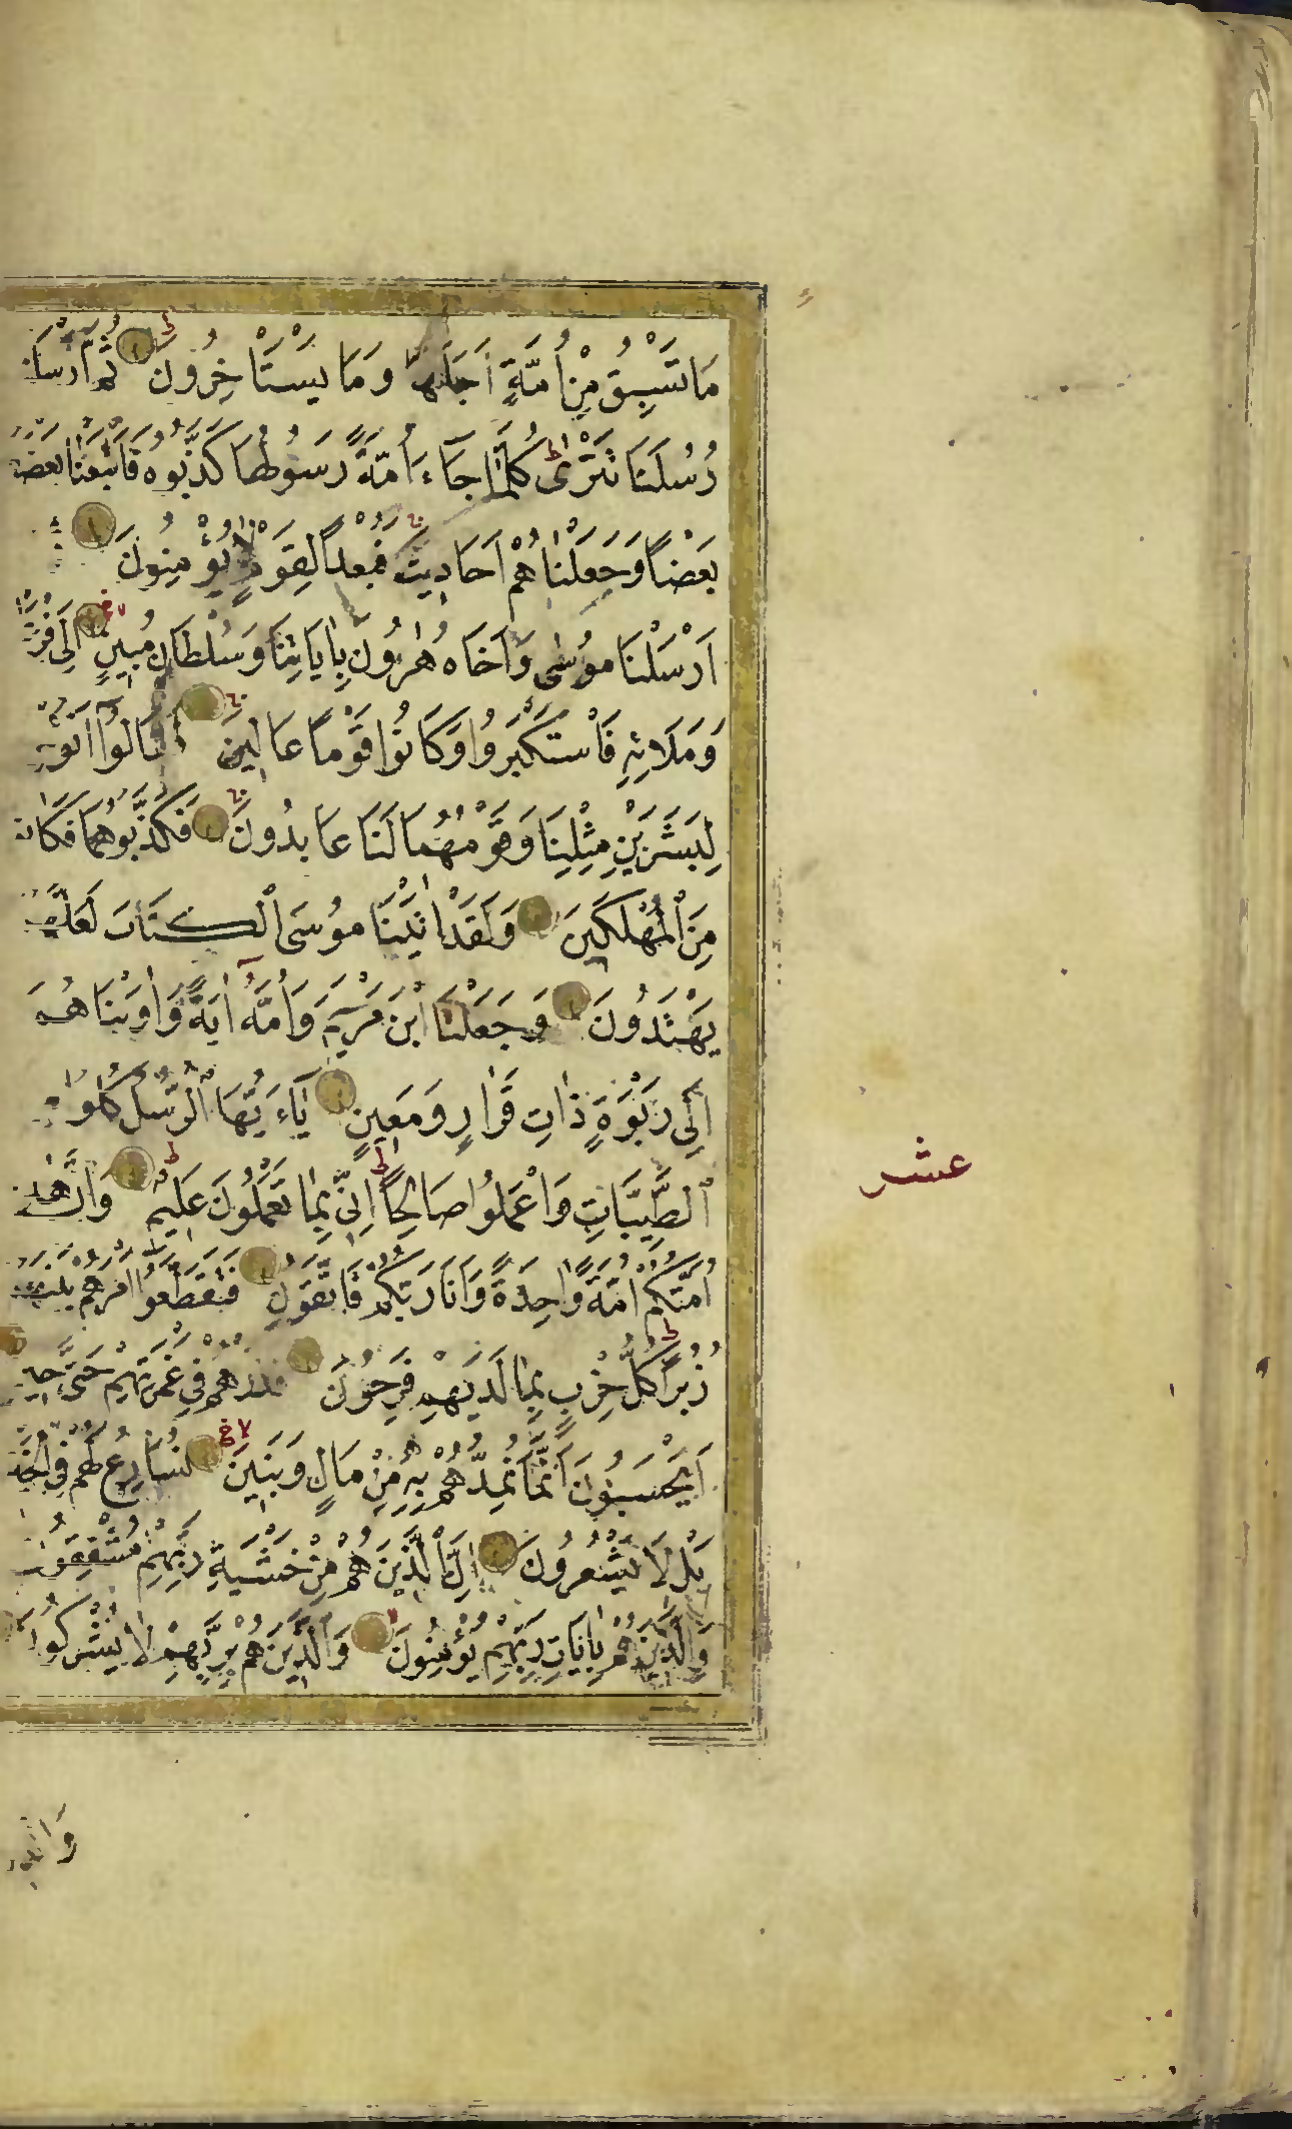 مَا تَسْبِقُ مِنْ أُمَّةٍ اَجَلَهَا وَمَا يَسْتَاْخِرُونَ ثُمَّ اَرْسَلْنَا
رُسُلَنَا تَتْرٰى كُلَّمَا جَاءَ اُمَّةً رَسُولُهَا كَذَّبُوهُ فَاَتْبَعْنَا بَعْضَهُمْ
بَعْضًا وَجَعَلْنَاهُمْ اَحَادِيثَ فَبُعْدًا لِقَوْمٍ لَا يُؤْمِنُونَ
اَرْسَلْنَا مُوسٰى وَاَخَاهُ هٰرُونَ بِاٰيَاتِنَا وَسُلْطَانٍ مُبِينٍ اِلٰى فِرْ
وَمَلَائِهِ فَاسْتَكْبَرُوا وَكَانُوا قَوْمًا عَالِينَ فَقَالُوا اَنُؤْمِنُ
لِبَشَرَيْنِ مِثْلِنَا وَقَوْمُهُمَا لَنَا عَابِدُونَ فَكَذَّبُوهُمَا فَكَانُوا
مِنَ الْمُهْلَكِينَ وَلَقَدْ اٰتَيْنَا مُوسَى الْكِتَابَ لَعَلَّهُمْ
يَهْتَدُونَ وَجَعَلْنَا ابْنَ مَرْيَمَ وَاُمَّهُ اٰيَةً وَاٰوَيْنَاهُمَا
اِلٰى رَبْوَةٍ ذَاتِ قَرَارٍ وَمَعِينٍ يَاءَيُّهَا الرُّسُلُ كُلُوا
الطَّيِّبَاتِ وَاعْمَلُوا صَالِحًا اِنِّي بِمَا تَعْمَلُونَ عَلِيمٌ وَاِنَّ هٰذِهِ
اُمَّتُكُمْ اُمَّةً وَاحِدَةً وَاَنَا رَبُّكُمْ فَاتَّقُونِ فَتَقَطَّعُوا اَمْرَهُمْ بَيْنَهُمْ
زُبُرًا كُلُّ حِزْبٍ بِمَا لَدَيْهِمْ فَرِحُونَ فَذَرْهُمْ فِي غَمْرَتِهِمْ حَتّٰى حِينٍ
اَيَحْسَبُونَ اَنَّمَا نُمِدُّهُمْ بِهِ مِنْ مَالٍ وَبَنِينَ نُسَارِعُ لَهُمْ فِي الْخَيْ
بَلْ لَا يَشْعُرُونَ اِنَّ الَّذِينَ هُمْ مِنْ خَشْيَةِ رَبِّهِمْ مُشْفِقُونَ
وَالَّذِينَ هُمْ بِاٰيَاتِ رَبِّهِمْ يُؤْمِنُونَ وَالَّذِينَ هُمْ بِرَبِّهِمْ لَا يُشْرِكُونَ
عشر